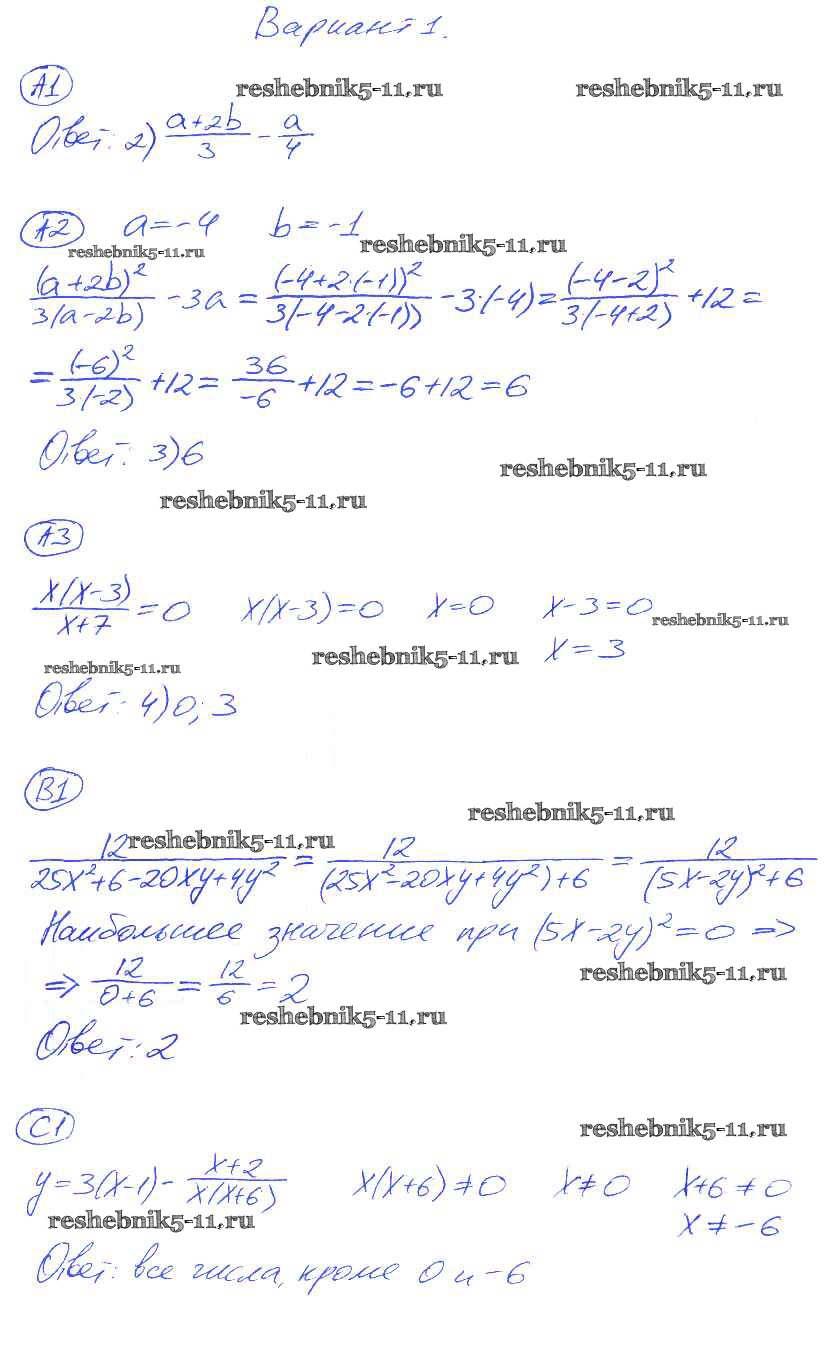 Вариант 1.
А1 reshebnik5-11.ru reshebnik5-11.ru
Ответ: 2) (a+2b)/3 - a/4
А2 a=-4 b=-1
reshebnik5-11.ru reshebnik5-11.ru
(a+2b)²/3(a-2b) - 3a = (-4+2·(-1))²/3(-4-2·(-1)) - 3·(-4) = (-4-2)²/3(-4+2) + 12 =
= (-6)²/3·(-2) + 12 = 36/-6 + 12 = -6+12 = 6
Ответ: 3) 6
reshebnik5-11.ru
reshebnik5-11.ru
А3
x(x-3)/x+7 = 0 x(x-3)=0 x=0 x-3=0
reshebnik5-11.ru
x=3
reshebnik5-11.ru reshebnik5-11.ru
Ответ: 4) 0; 3
В1
reshebnik5-11.ru
reshebnik5-11.ru
12/25x²+6-20xy+4y² = 12/(25x²-20xy+4y²)+6 = 12/(5x-2y)²+6
Наибольшее значение при (5x-2y)²=0 =>
=> 12/0+6 = 12/6 = 2
reshebnik5-11.ru
reshebnik5-11.ru
Ответ: 2
С1
reshebnik5-11.ru
y=3(x-1) - x+2/x(x+6) x(x+6)≠0 x≠0 x+6≠0
reshebnik5-11.ru
x≠-6
Ответ: все числа, кроме 0 и -6